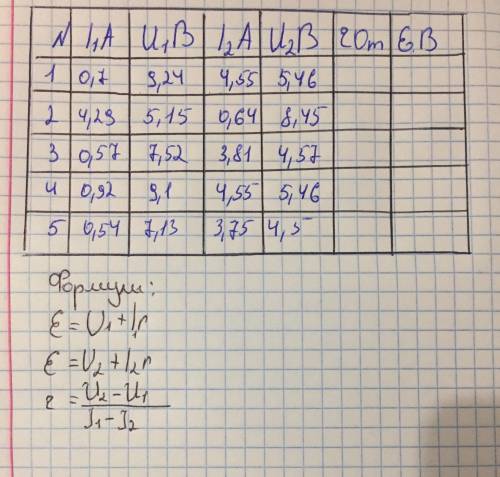 N I₁A U₁B I₂A U₂B rOm Ɛ.B
1 0,7 9,24 4,55 5,46
2 4,29 5,15 0,64 8,45
3 0,57 7,52 3,81 4,57
4 0,92 9,1 4,55 5,46
5 0,54 7,13 3,75 4,5
Формулы:
Ɛ = U₁ + I₁r
Ɛ = U₂ + I₂r
r = U₂ - U₁
I₁ - I₂